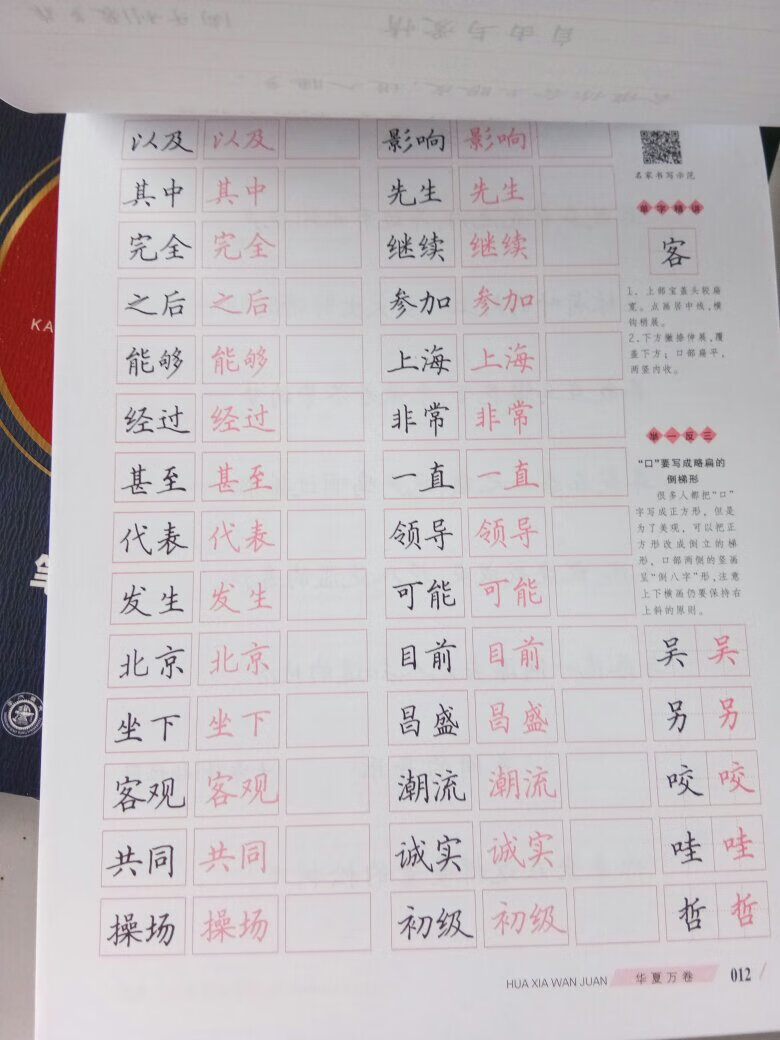 以及 以及 影响 影响
其中 其中 先生 先生
完全 完全 继续 继续
之后 之后 参加 参加
能够 能够 上海 上海
经过 经过 非常 非常
甚至 甚至 一直 一直
代表 代表 领导 领导
发生 发生 可能 可能
北京 北京 目前 目前
坐下 坐下 昌盛 昌盛
客观 客观 潮流 潮流
共同 共同 诚实 诚实
操场 操场 初级 初级
名家书写示范
单字精讲
客
1、上部宝盖头较扁
宽。点画居中线，横
钩稍展。
2、下方撇捺伸展，覆
盖下方；口部扁平，
两竖内收。
举一反三
“口”要写成略扁的
倒梯形
很多人都把“口”
字写成正方形，但是
为了美观，可以把正
方形改成倒立的梯
形，口部两侧的竖画
呈“倒八字”形，注意
上下横画仍要保持右
上斜的原则。
吴 吴
另 另
咬 咬
哇 哇
哲 哲
HUA XIA WAN JUAN 华夏万卷 012
KA